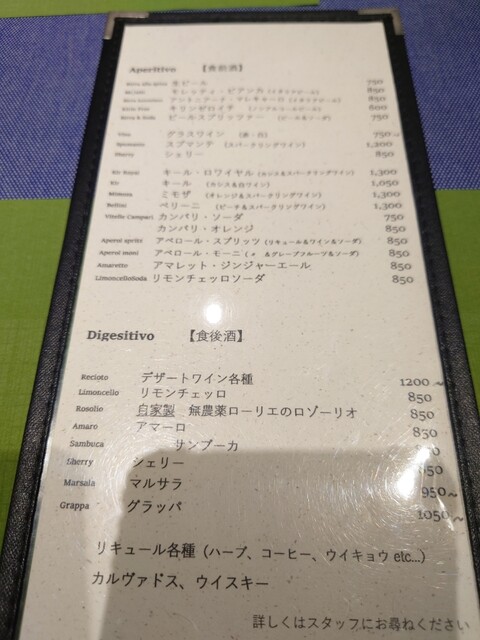 Aperitivo 【食前酒】
Birra alla spina 生ビール 750
モレッティ・ビアンカ (イタリアビール) 850
アントニオ・ディ・マレキャーロ (イタリアビール) 850
キリンゼロイチ (ノンアルコールビール) 600
Birra & Soda ビールスプリッツァー (ビール&ソーダ) 750
Vino グラスワイン (赤・白) 750～
Spumante スプマンテ (スパークリングワイン) 1,200
Sherry シェリー 850
Kir Royal キール・ロワイヤル (カシス&スパークリングワイン) 1,300
Kir キール (カシス&白ワイン) 1,050
Mimosa ミモザ (オレンジ&スパークリングワイン) 1,300
Bellini ベリーニ (ピーチ&スパークリングワイン) 1,300
Vitello Campari カンパリ・ソーダ 750
カンパリ・オレンジ 850
Aperol spritz アペロール・スプリッツ (リキュール&ワイン&ソーダ) 850
Aperol moni アペロール・モーニ (〃 &グレープフルーツ&ソーダ) 850
Amaretto アマレット・ジンジャーエール 850
LimoncelloSoda リモンチェッロソーダ 850
Digesitivo 【食後酒】
Recioto デザートワイン各種 1200～
Limoncello リモンチェッロ 850
Rosolio 自家製 無農薬ローリエのロゾーリオ 850
Amaro アマーロ 850
Sambuca サンブーカ
Sherry シェリー 850
Marsala マルサラ 950～
Grappa グラッパ 1050～
リキュール各種 (ハーブ、コーヒー、ウイキョウ etc...)
カルヴァドス、ウイスキー
詳しくはスタッフにお尋ねください